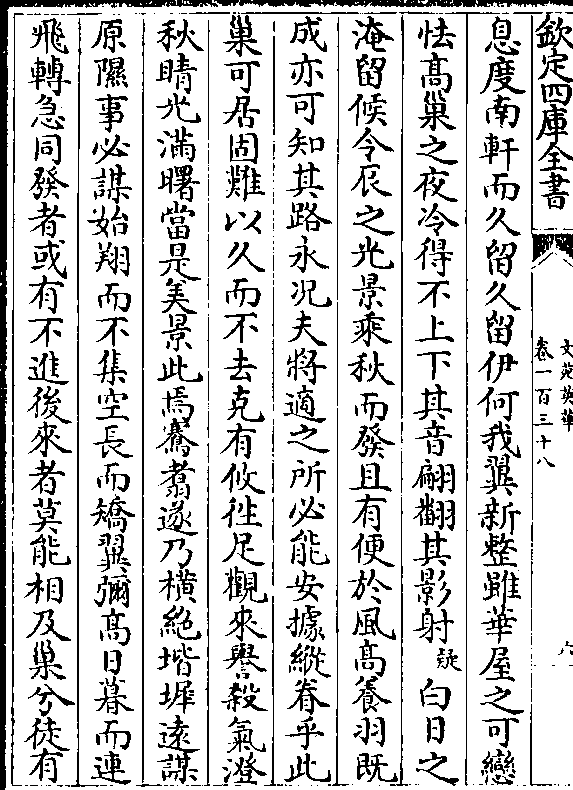 欽定四庫全書
文苑英華
卷一百三十八
息度南軒而久留久留伊何我翼新整雖華屋之可戀
怯高巢之夜冷得不上下其音翩翻其影射疑白日之
淹留候令辰之光景乘秋而發且有便於風高養羽既
成亦可知其路永况夫將適之所必能安據縱眷乎此
巢可居固難以久而不去克有攸往足觀來譽殺氣澄
秋晴光滿曙當是美景此焉騫翥遂乃橫絶堦墀遠謀
原隰事必謀始翔而不集空長而矯翼彌高日暮而連
飛轉急同發者或有不進後來者莫能相及巢兮徒有